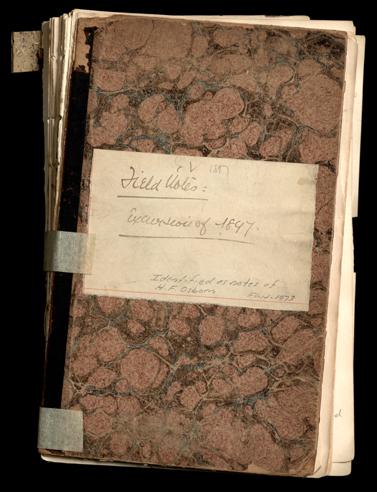 V 1897
Field Notes:
Excursion of 1897.
Identified as notes of
H. F. Osborn
1973
d